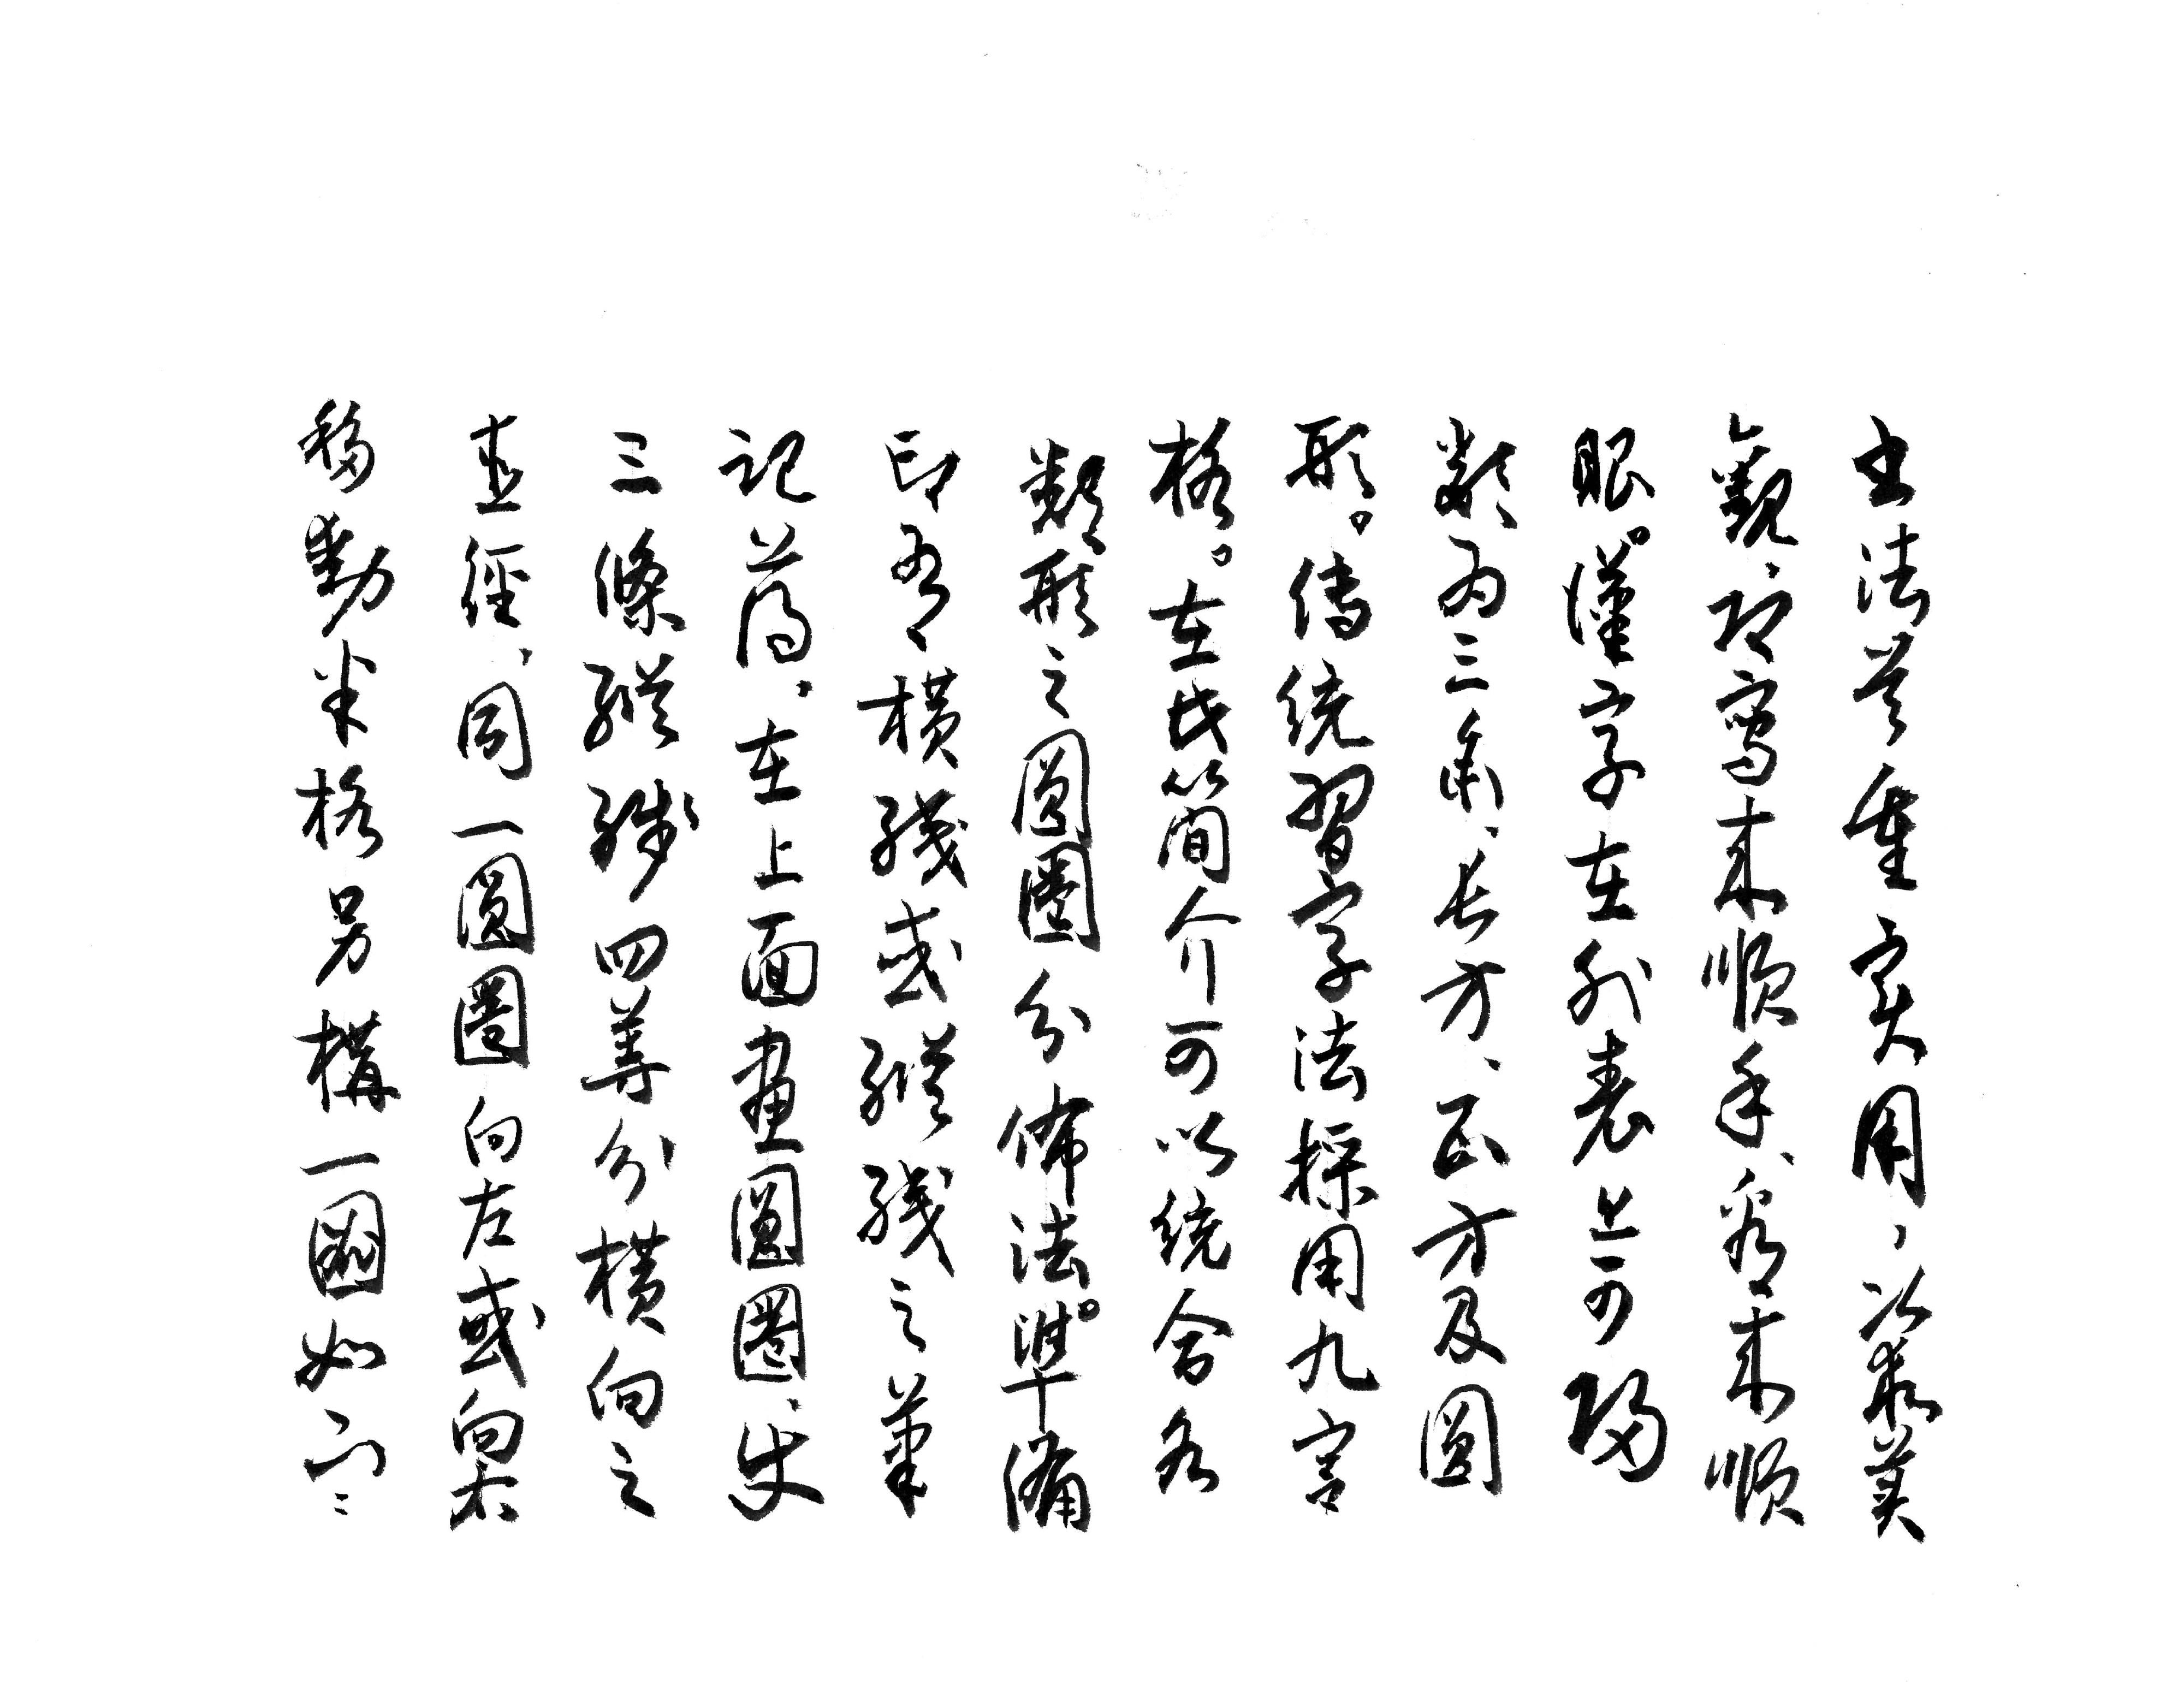 書法首重實用,次求美
觀,即寫来順手、看来順
眼。漢字在外表上可歸
類為三角、長方、正方及圓
形。傳統習字法採用九宮
格。在此簡介可以統合各
類形之圓圈分佈法。準備
印有橫綫或縱綫之筆
記簿,在上面畫圓圈,使
三條縱綫四等分橫向之
直徑,同一圓圈向左或向右
移動半格另構一圓如下: